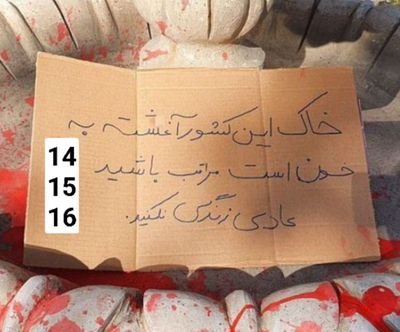 خاک این کشور آغشته به
خون است مراقب باشید
عادی زندگی نکنید.
14
15
16